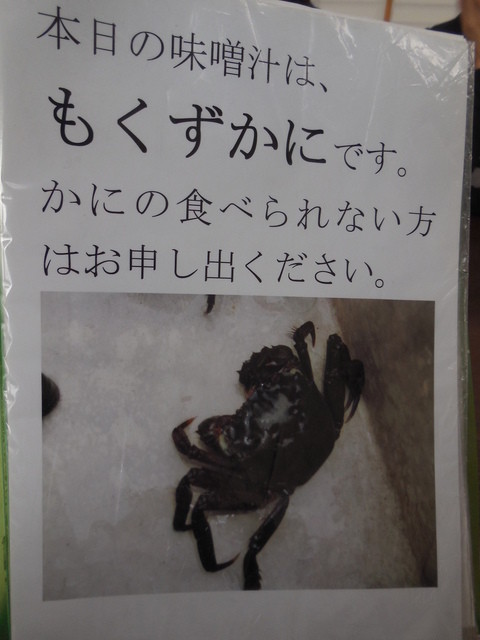 本日の味噌汁は、
もくずかにです。
かにの食べられない方
はお申し出ください。